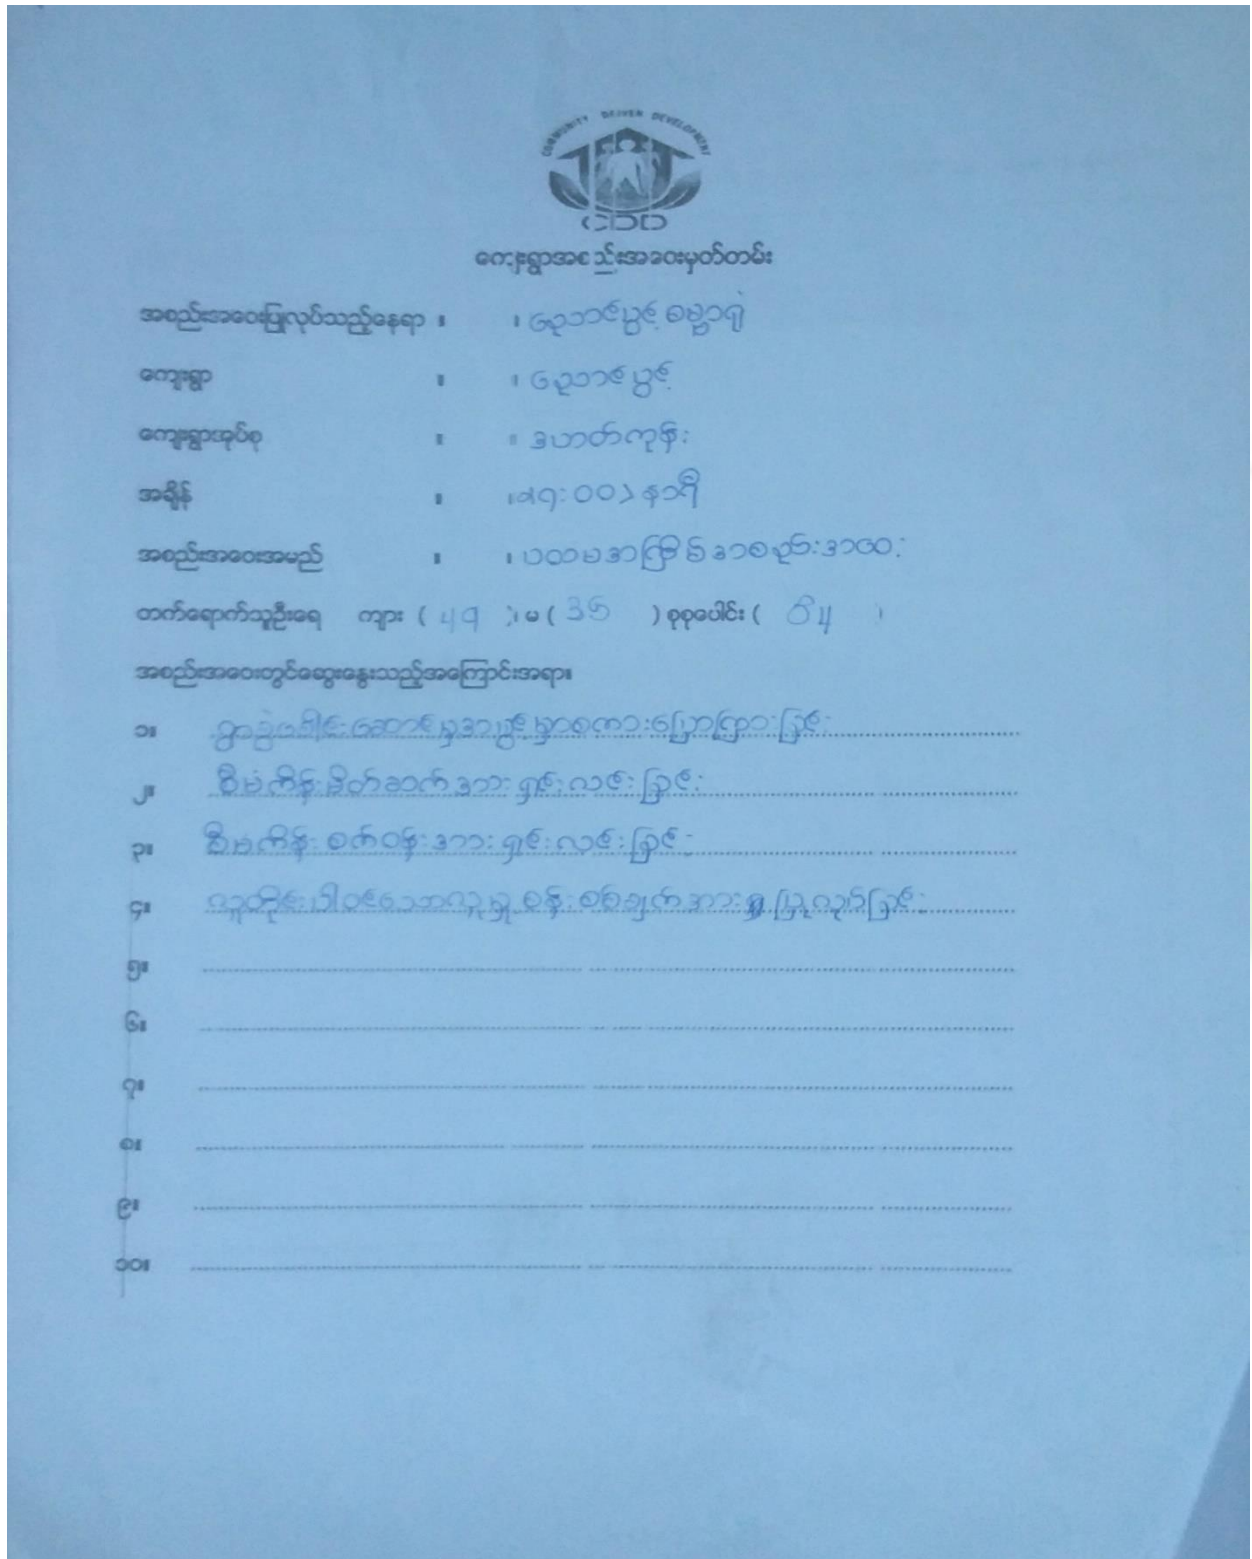 COMMUNITY DRIVEN DEVELOPMENT
CDD
ကျေးရွာအစည်းအဝေးမှတ်တမ်း
အစည်းအဝေးပြုလုပ်သည့်နေရာ ။ ။ ညောင်ပွင့် ဓမ္မာရုံ
ကျေးရွာ ။ ။ ညောင်ပွင့်
ကျေးရွာအုပ်စု ။ ။ ဒဟတ်ကုန်း
အချိန် ။ ။ နာရီ
အစည်းအဝေးအမည် ။ ။ ပထမအကြိမ်အစည်းအဝေး
တက်ရောက်သူဦးရေ ကျား ( 49 )၊ မ ( 35 ) စုစုပေါင်း ( 84 )
အစည်းအဝေးတွင်ဆွေးနွေးသည့်အကြောင်းအရာ။
၁။ ခေါင်းဆောင်မှအဖွင့်မှာစကားပြောကြားခြင်း
၂။ စီမံကိန်းမိတ်ဆက်အားရှင်းလင်းခြင်း
၃။ စီမံကိန်းစက်ဝန်းအားရှင်းလင်းခြင်း
၄။ လူတိုင်းပါဝင်သောလူမှုစန်းစစ်ချက်အား ပြုလုပ်ခြင်း
၅။
၆။
၇။
၈။
၉။
၁၀။